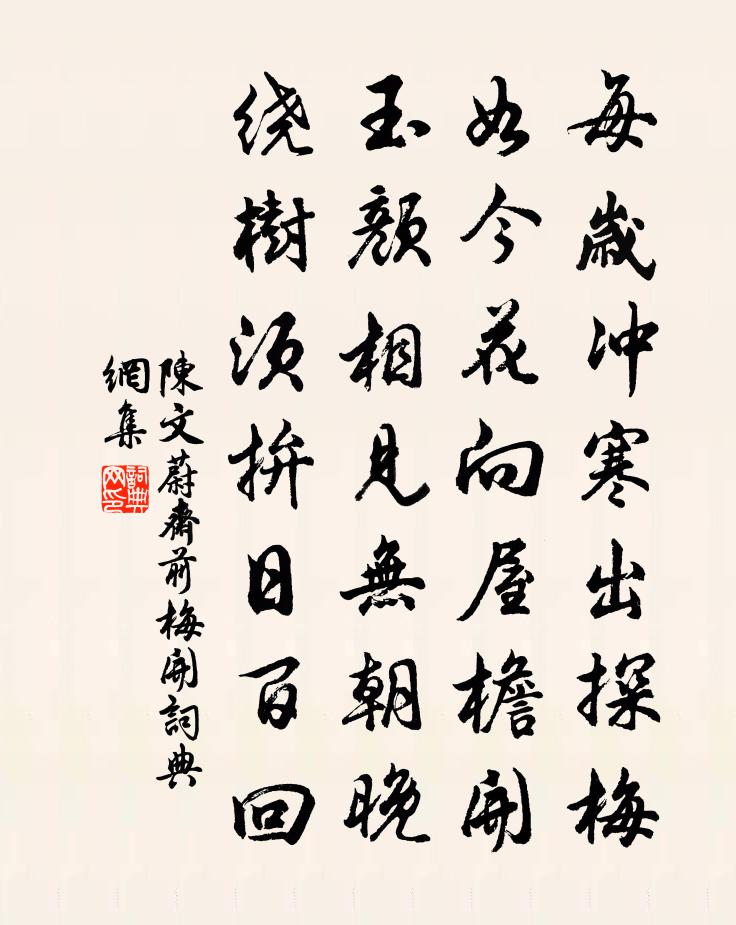 每歲冲寒出探梅
如今花向屋檐開
玉顏相見無朝晚
绕樹須拚日百回
陳文蔚齋前梅開詞典
網集
詞典
网印